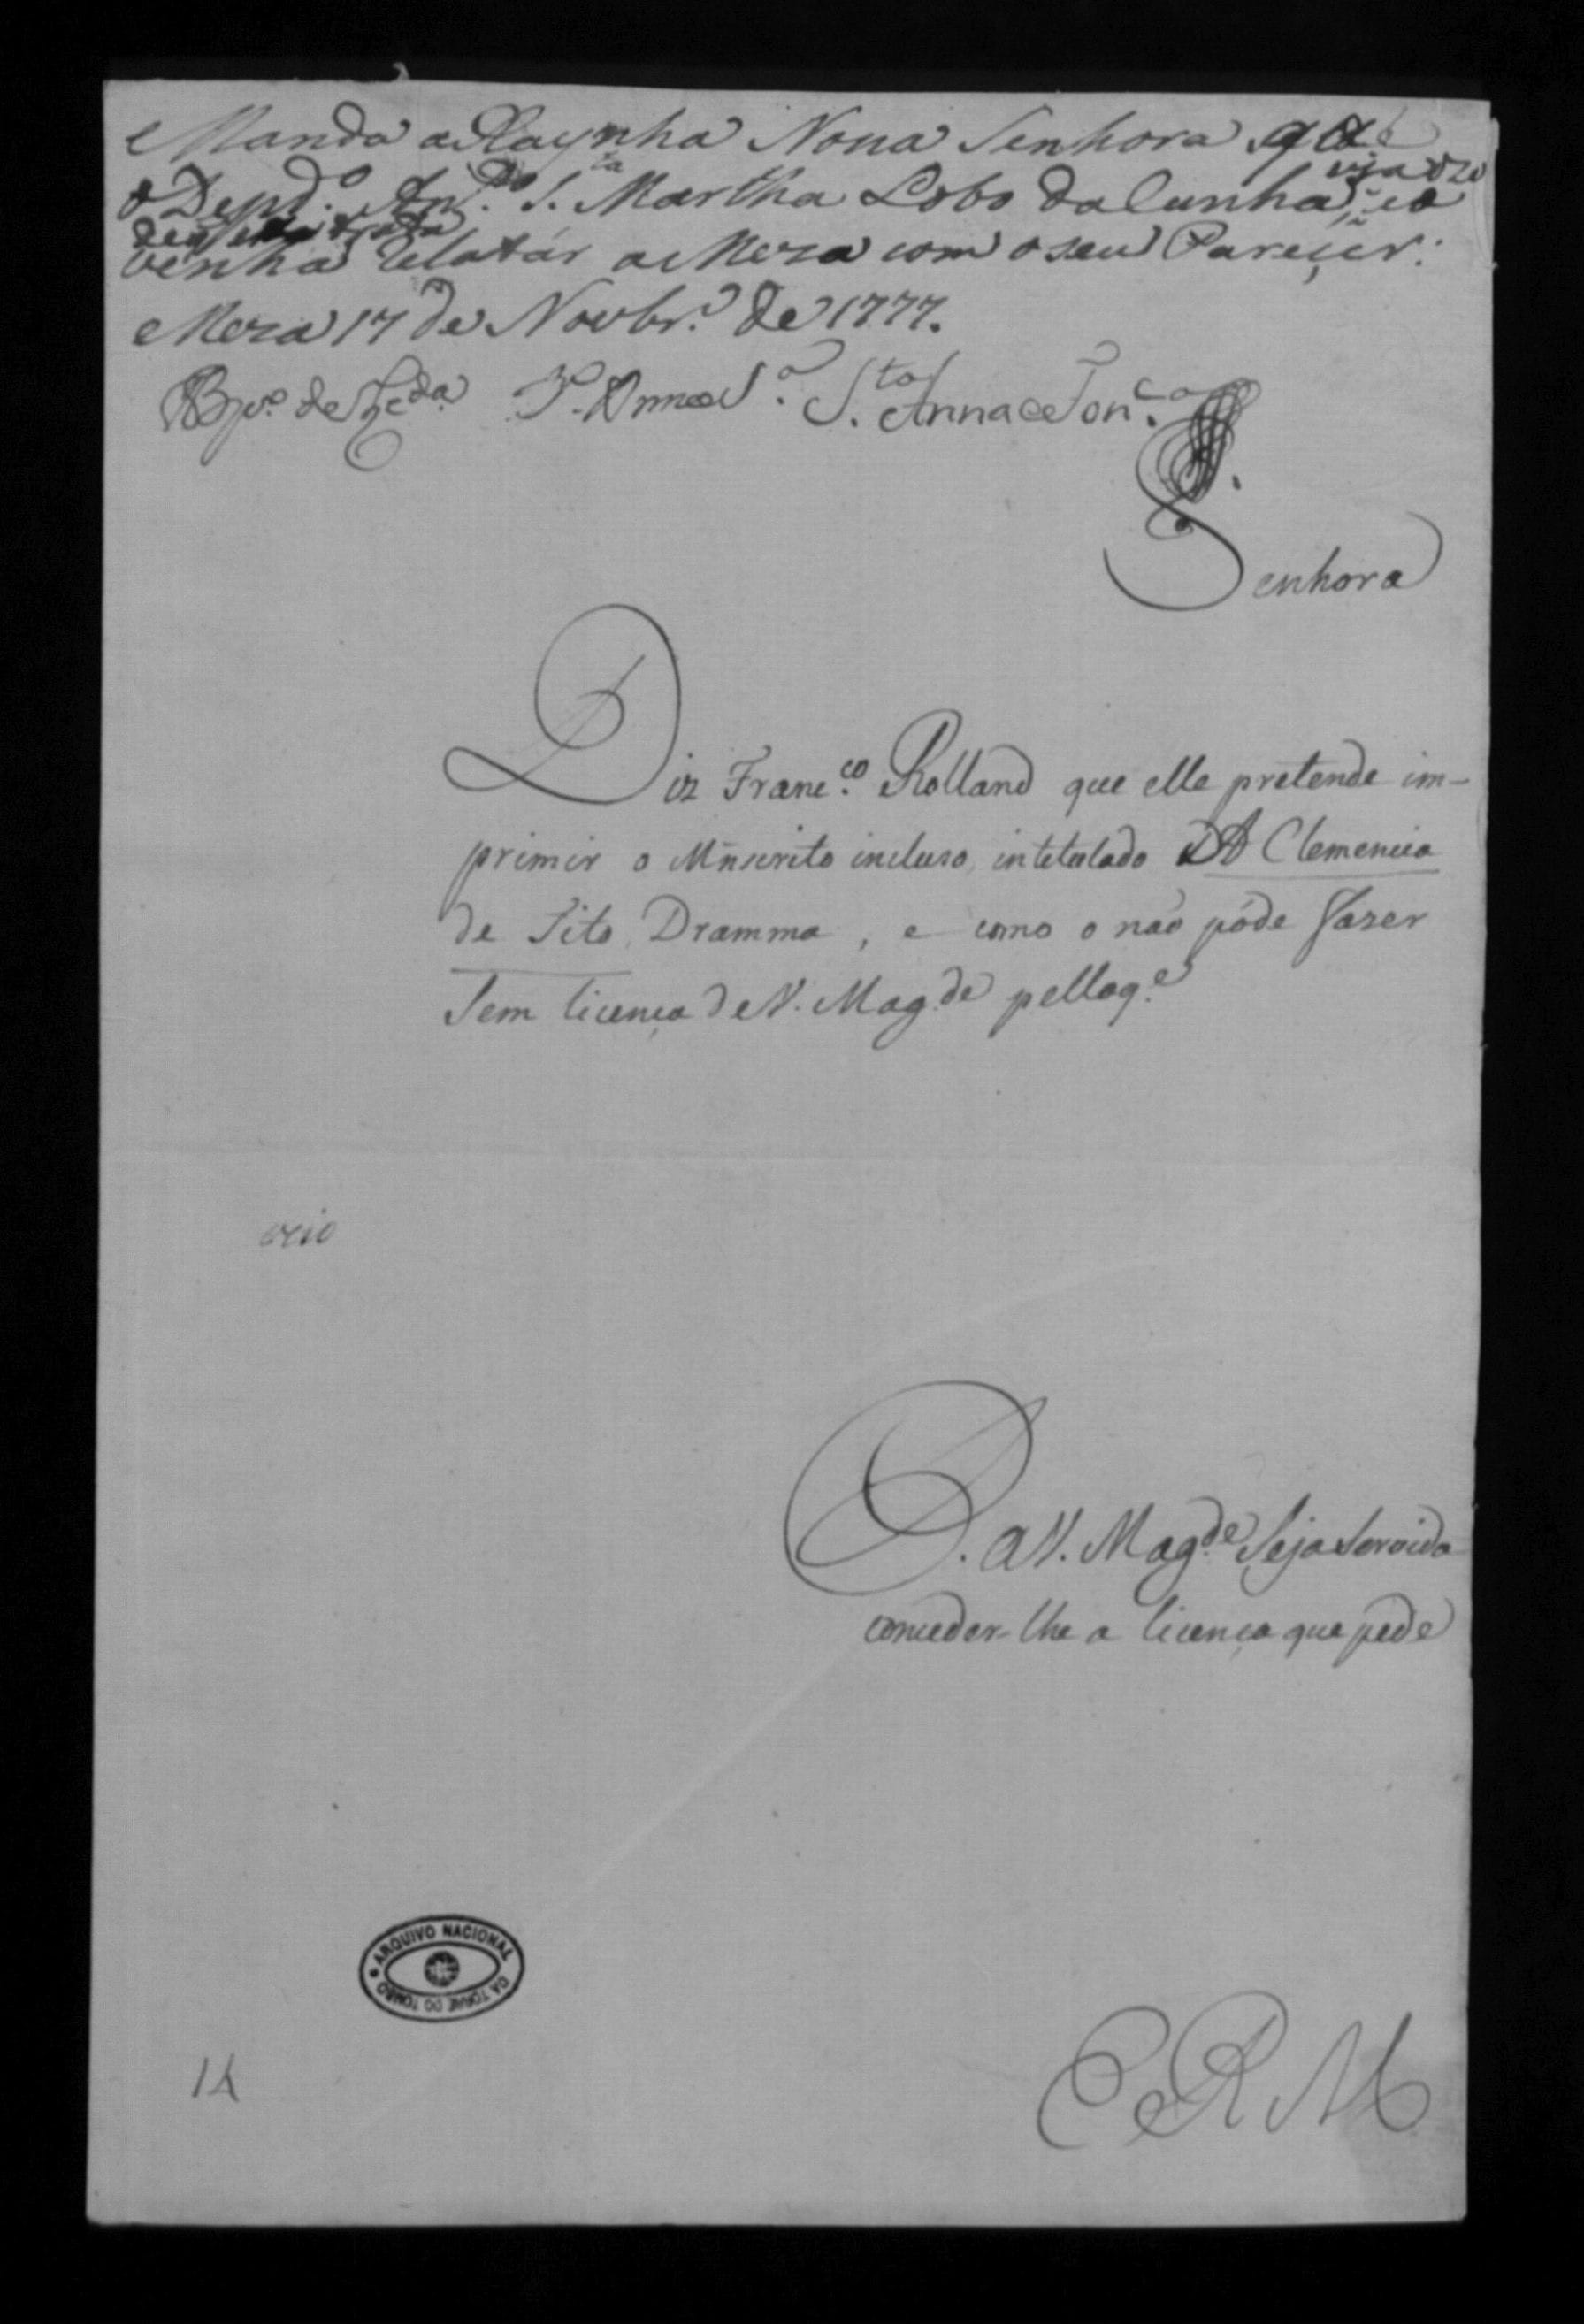 Manda a Raynha Nossa Senhora que
veja o
o Deput.º Ant.º S.ta Martha Lobo da Cunha, e o
de que trata
venha relatar a Meza com o seu Pareçer.
Meza 17 de Novbr.º de 1777.
Bpo. de S.ta Anna e Fon.ca
Senhora
Diz Franc.co Rolland que elle pretende im-
primir o Mñscrito incluso, intitulado A Clemencia
de Tito, Dramma, e como o não póde fazer
sem licença de V. Mag.de pello q.e
P. a V. Mag.de Seja servida
conceder-lhe a licença que pede
ARQUIVO NACIONAL DA TORRE DO TOMBO
14
E R M